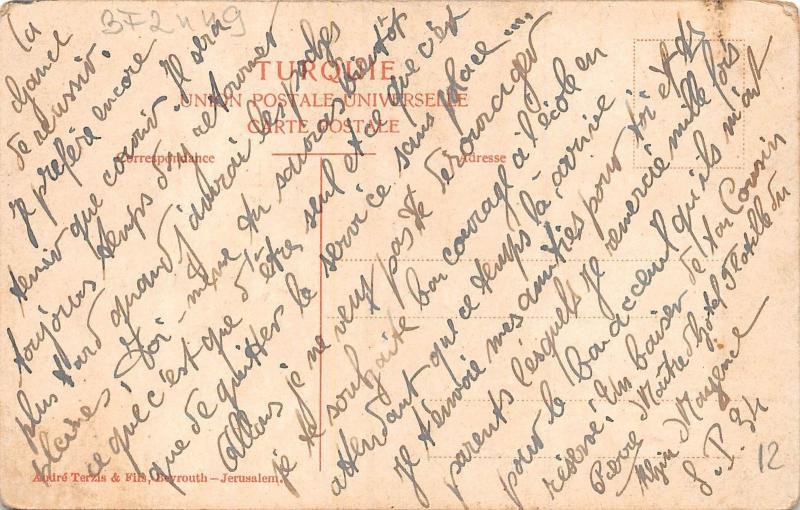 372449
TURQUIE
UNION POSTALE UNIVERSELLE
CARTE POSTALE
Correspondance
Adresse
la
chance
de réussir.
Je préfère encore
tenir que courir. Il sera
toujours temps d'y retourner
plus tard quand j'aurai les poches
pleines. Toi-même tu sauras bientôt
ce que c'est que d'être seul et ce que c'est
que de quitter le service sans place....
Allons je ne veux pas te décourager
je te souhaite bon courage à l'école en
attendant que ce temps là arrive
Je t'envoie mes amitiés pour toi et tes
parents lesquels je remercie mille fois
pour le bon acceuil qu'ils m'ont
réservé. Un baiser de ton Cousin
Pierre Maître d'hôtel Flotille du
Rhin Mayence
S.P. 34
André Terzis & Fils, Beyrouth – Jerusalem.
12